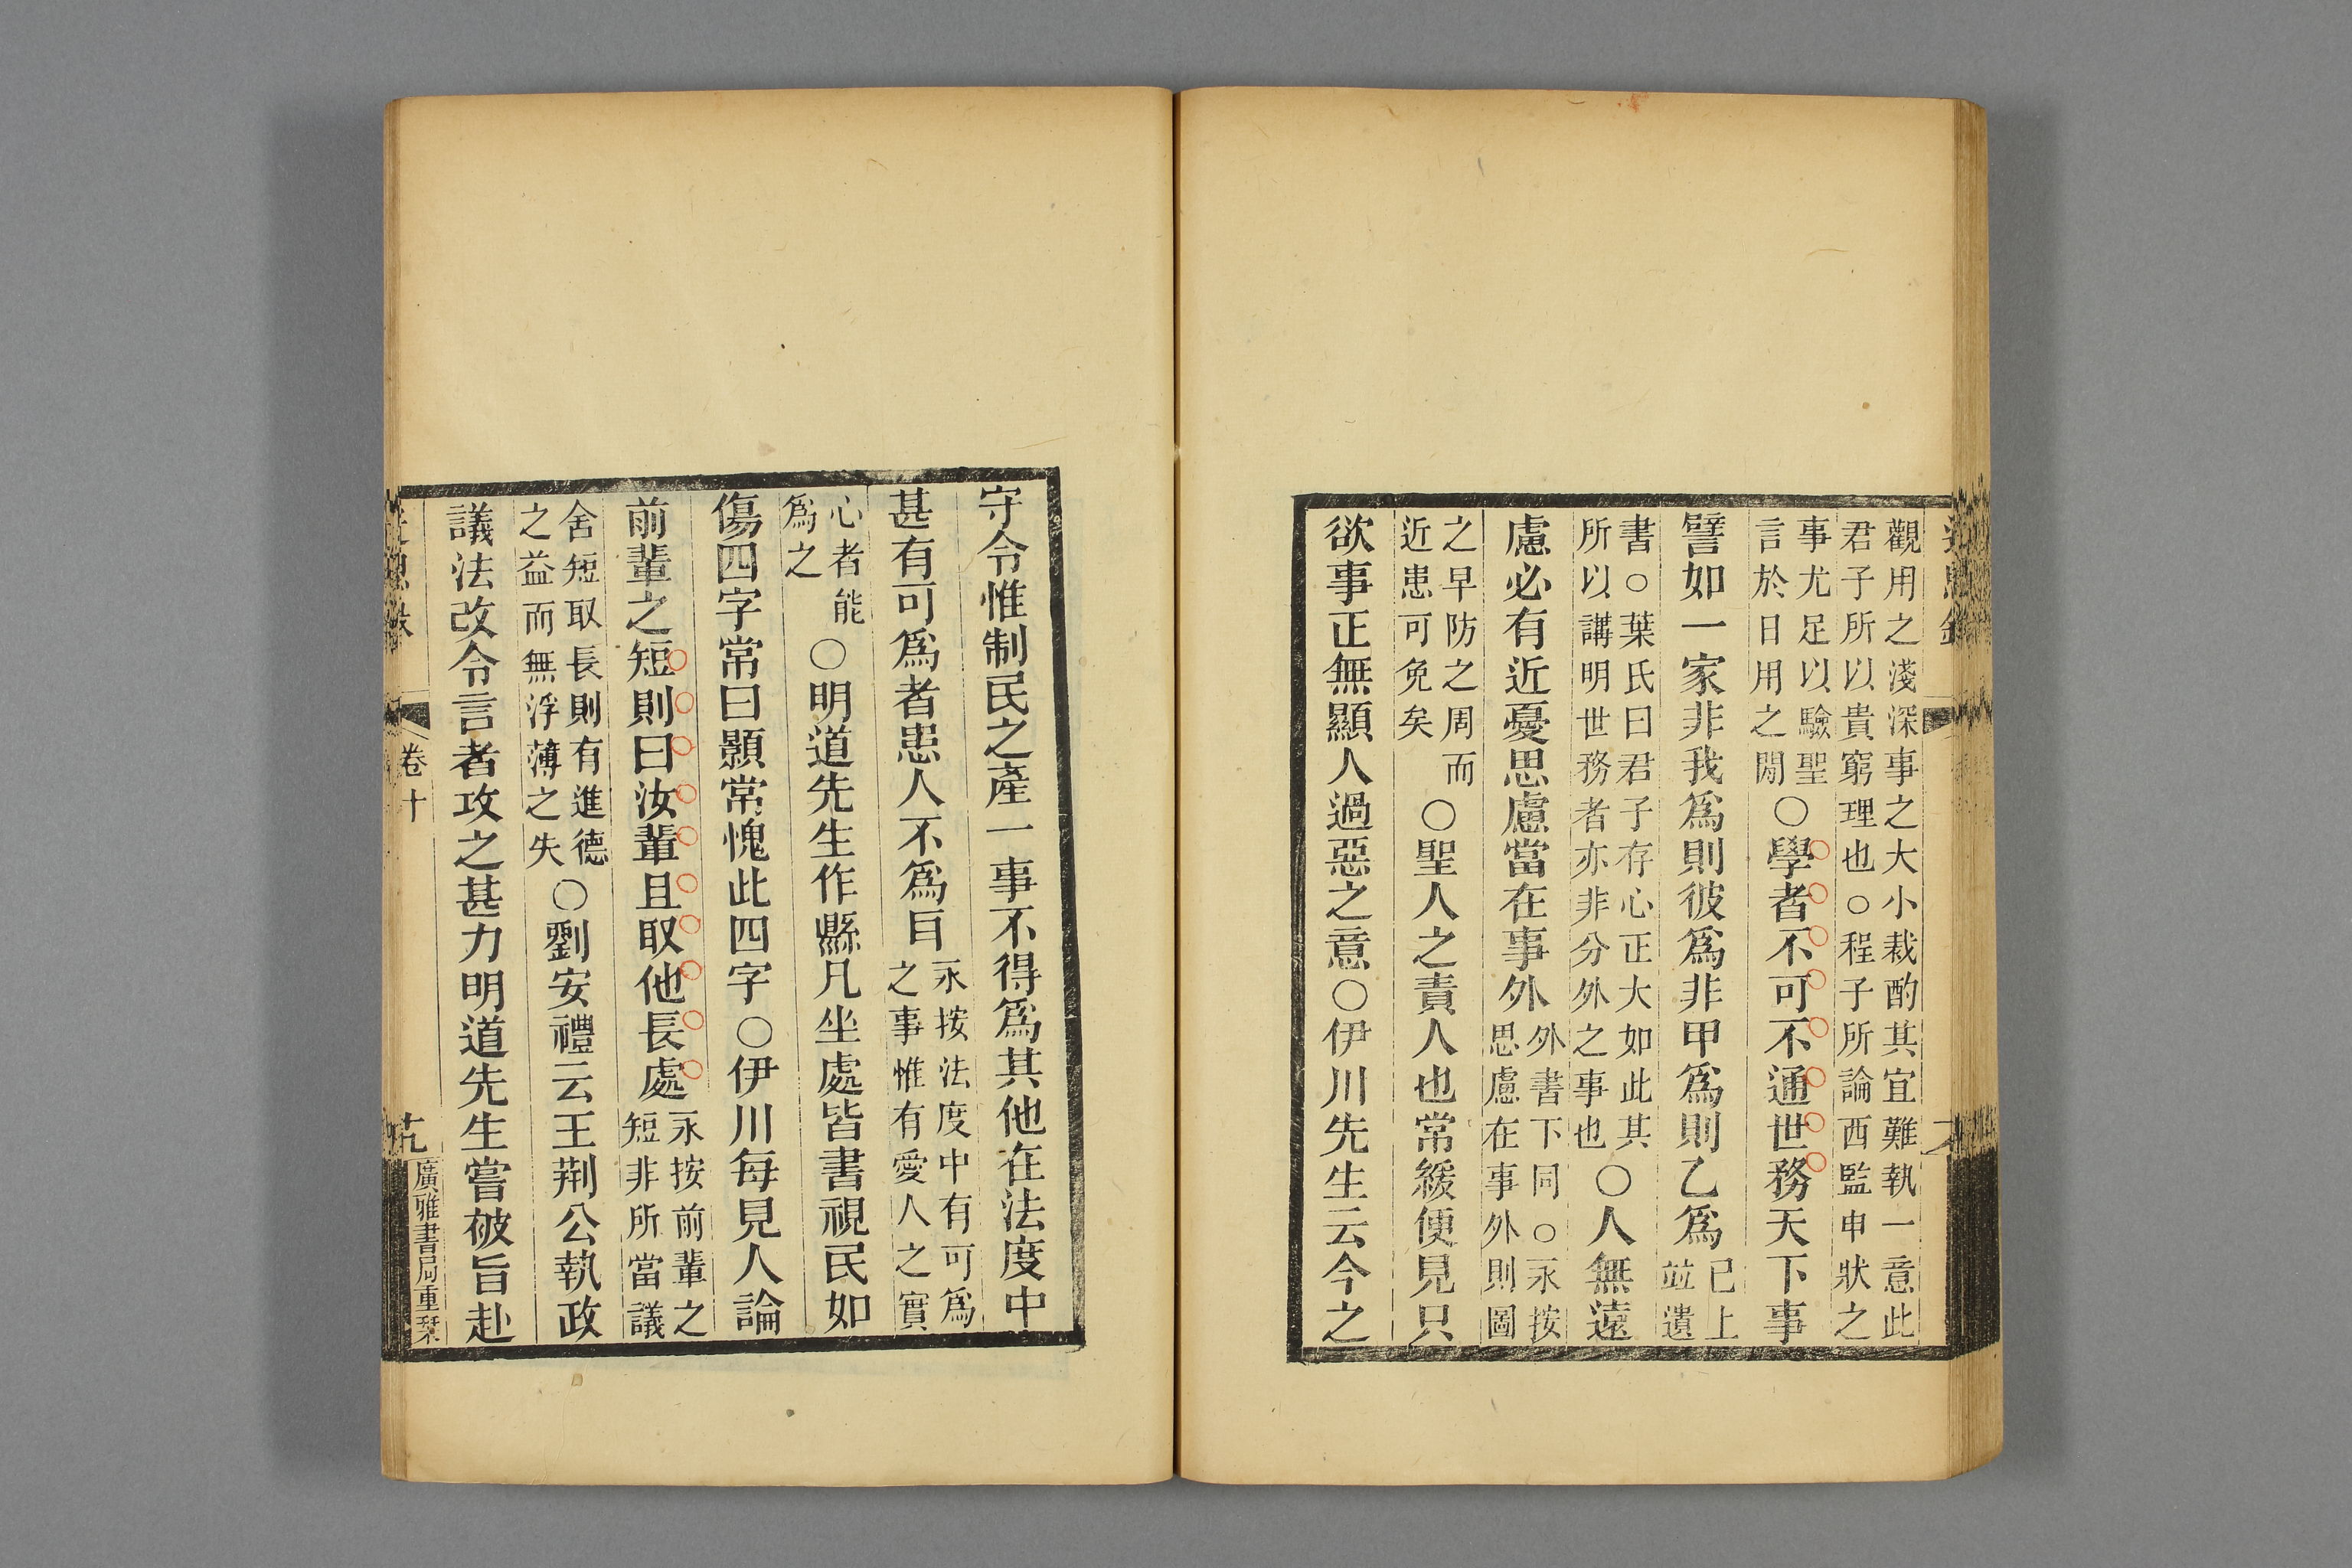 觀用之淺深事之大小裁酌其宜難執一意此
君子所以貴窮理也○程子所論西監申狀之
事尤足以驗聖
言於日用之閒
○學者不可不通世務天下事
譬如一家非我爲則彼爲非甲爲則乙爲
已上
竝遺
書○葉氏曰君子存心正大如此其
所以講明世務者亦非分外之事也
○人無遠
慮必有近憂思慮當在事外
外書下同○永按
思慮在事外則圖
之早防之周而
近患可免矣
○聖人之責人也常緩便見只
欲事正無顯人過惡之意○伊川先生云今之
守令惟制民之產一事不得爲其他在法度中
甚有可爲者患人不爲耳
永按法度中有可爲
之事惟有愛人之實
心者能
爲之
○明道先生作縣凡坐處皆書視民如
傷四字常曰顥常愧此四字○伊川每見人論
前輩之短則曰汝輩且取他長處
永按前輩之
短非所當議
舍短取長則有進德
之益而無浮薄之失
○劉安禮云王荆公執政
議法改令言者攻之甚力明道先生嘗被旨赴
卷十
廣雅書局重栞